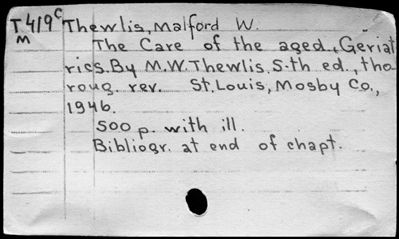 T419c Thewlis, Malford W.
M
The Care of the aged., Geriat
rics. By M.W. Thewlis. 5-th ed., tho
roug. rev. St. Louis, Mosby Co.,
1946.
500 p. with ill.
Bibliogr. at end of chapt.